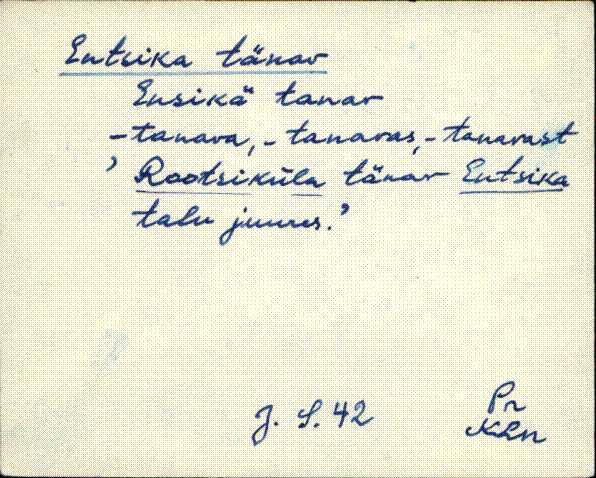 Entsika tänav
Ensikä tanav
-tanava, -tanavas, -tanavast
’Rootsiküla tänav Entsika
talu juures.’
J. S. 42
Pr
Khn